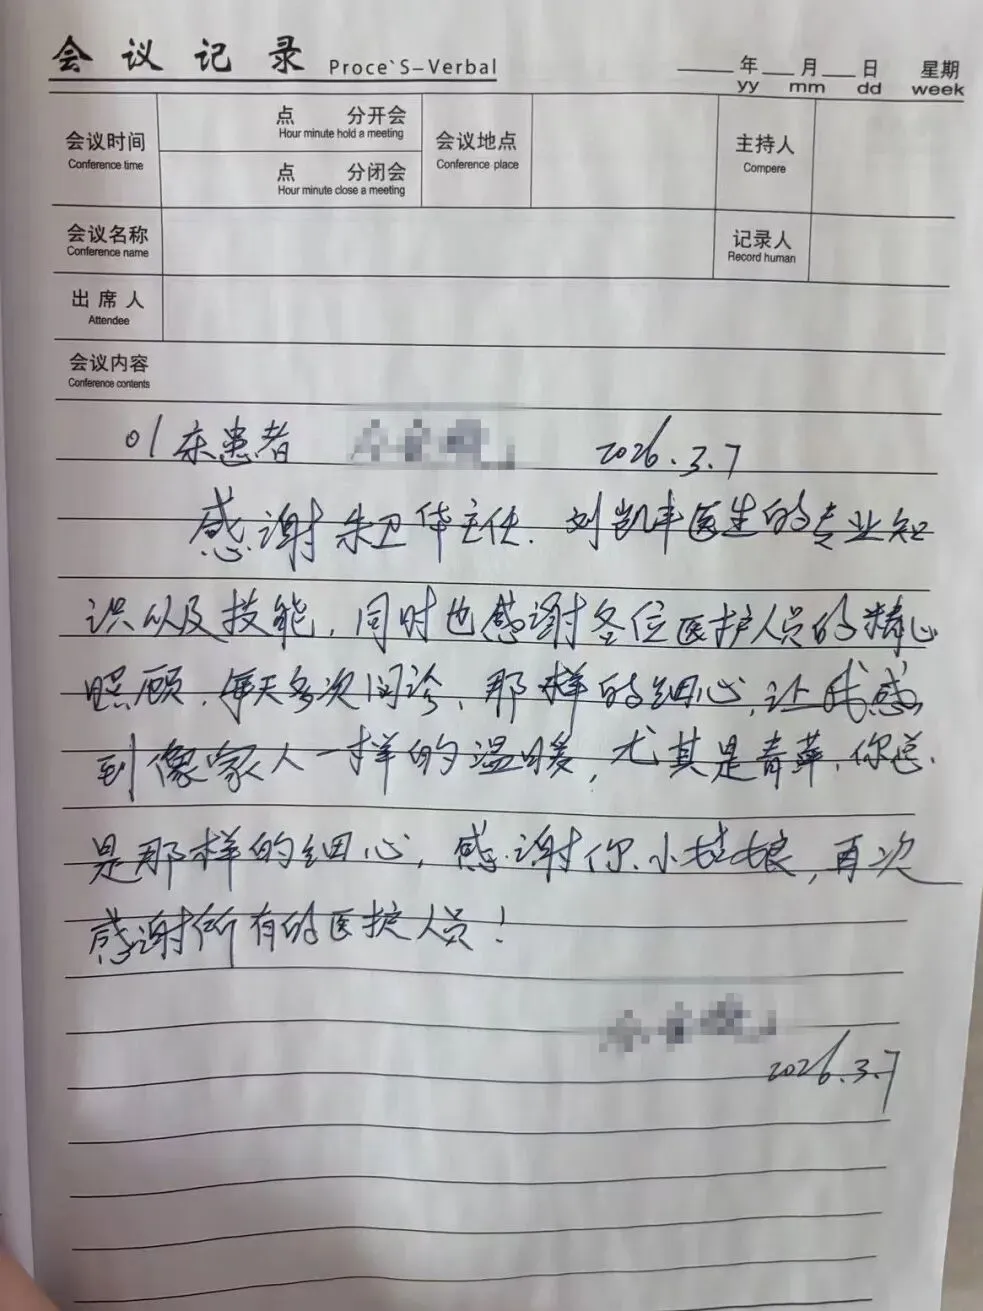 会议记录 Proce`S-Verbal
年 月 日 星期
yy mm dd week
会议时间
Conference time
点 分开会
Hour minute hold a meeting
点 分闭会
Hour minute close a meeting
会议地点
Conference place
主持人
Compere
会议名称
Conference name
记录人
Record human
出席人
Attendee
会议内容
Conference contents
01床患者 2026.3.7
感谢朱卫华主任、刘凯丰医生的专业知
识以及技能,同时也感谢各位医护人员的精心
照顾,每天多次问诊、那样的细心,让我感
到像家人一样的温暖,尤其是青萍,你总
是那样的细心,感谢你小姑娘,再次
感谢所有的医护人员!
2026.3.7